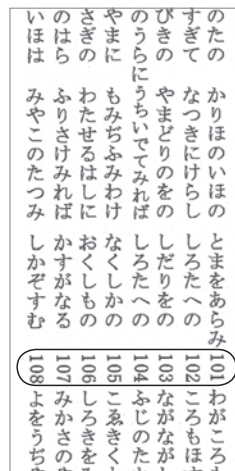 のたの かりほのいほの とまをあらみ 101 わがころも
すぎて なつきにけらし しろたへの 102 ころもほす
びきの やまどりのをの しだりをの 103 ながなが
のうらに うちいでてみれば しろたへの 104 ふじのた
やまに もみぢふみわけ なくしかの 105 こゑきく
さぎの わたせるはしに おくしもの 106 しろきを
のはら ふりさけみれば かすがなる 107 みかさの
いほは みやこのたつみ しかぞすむ 108 よをうぢ